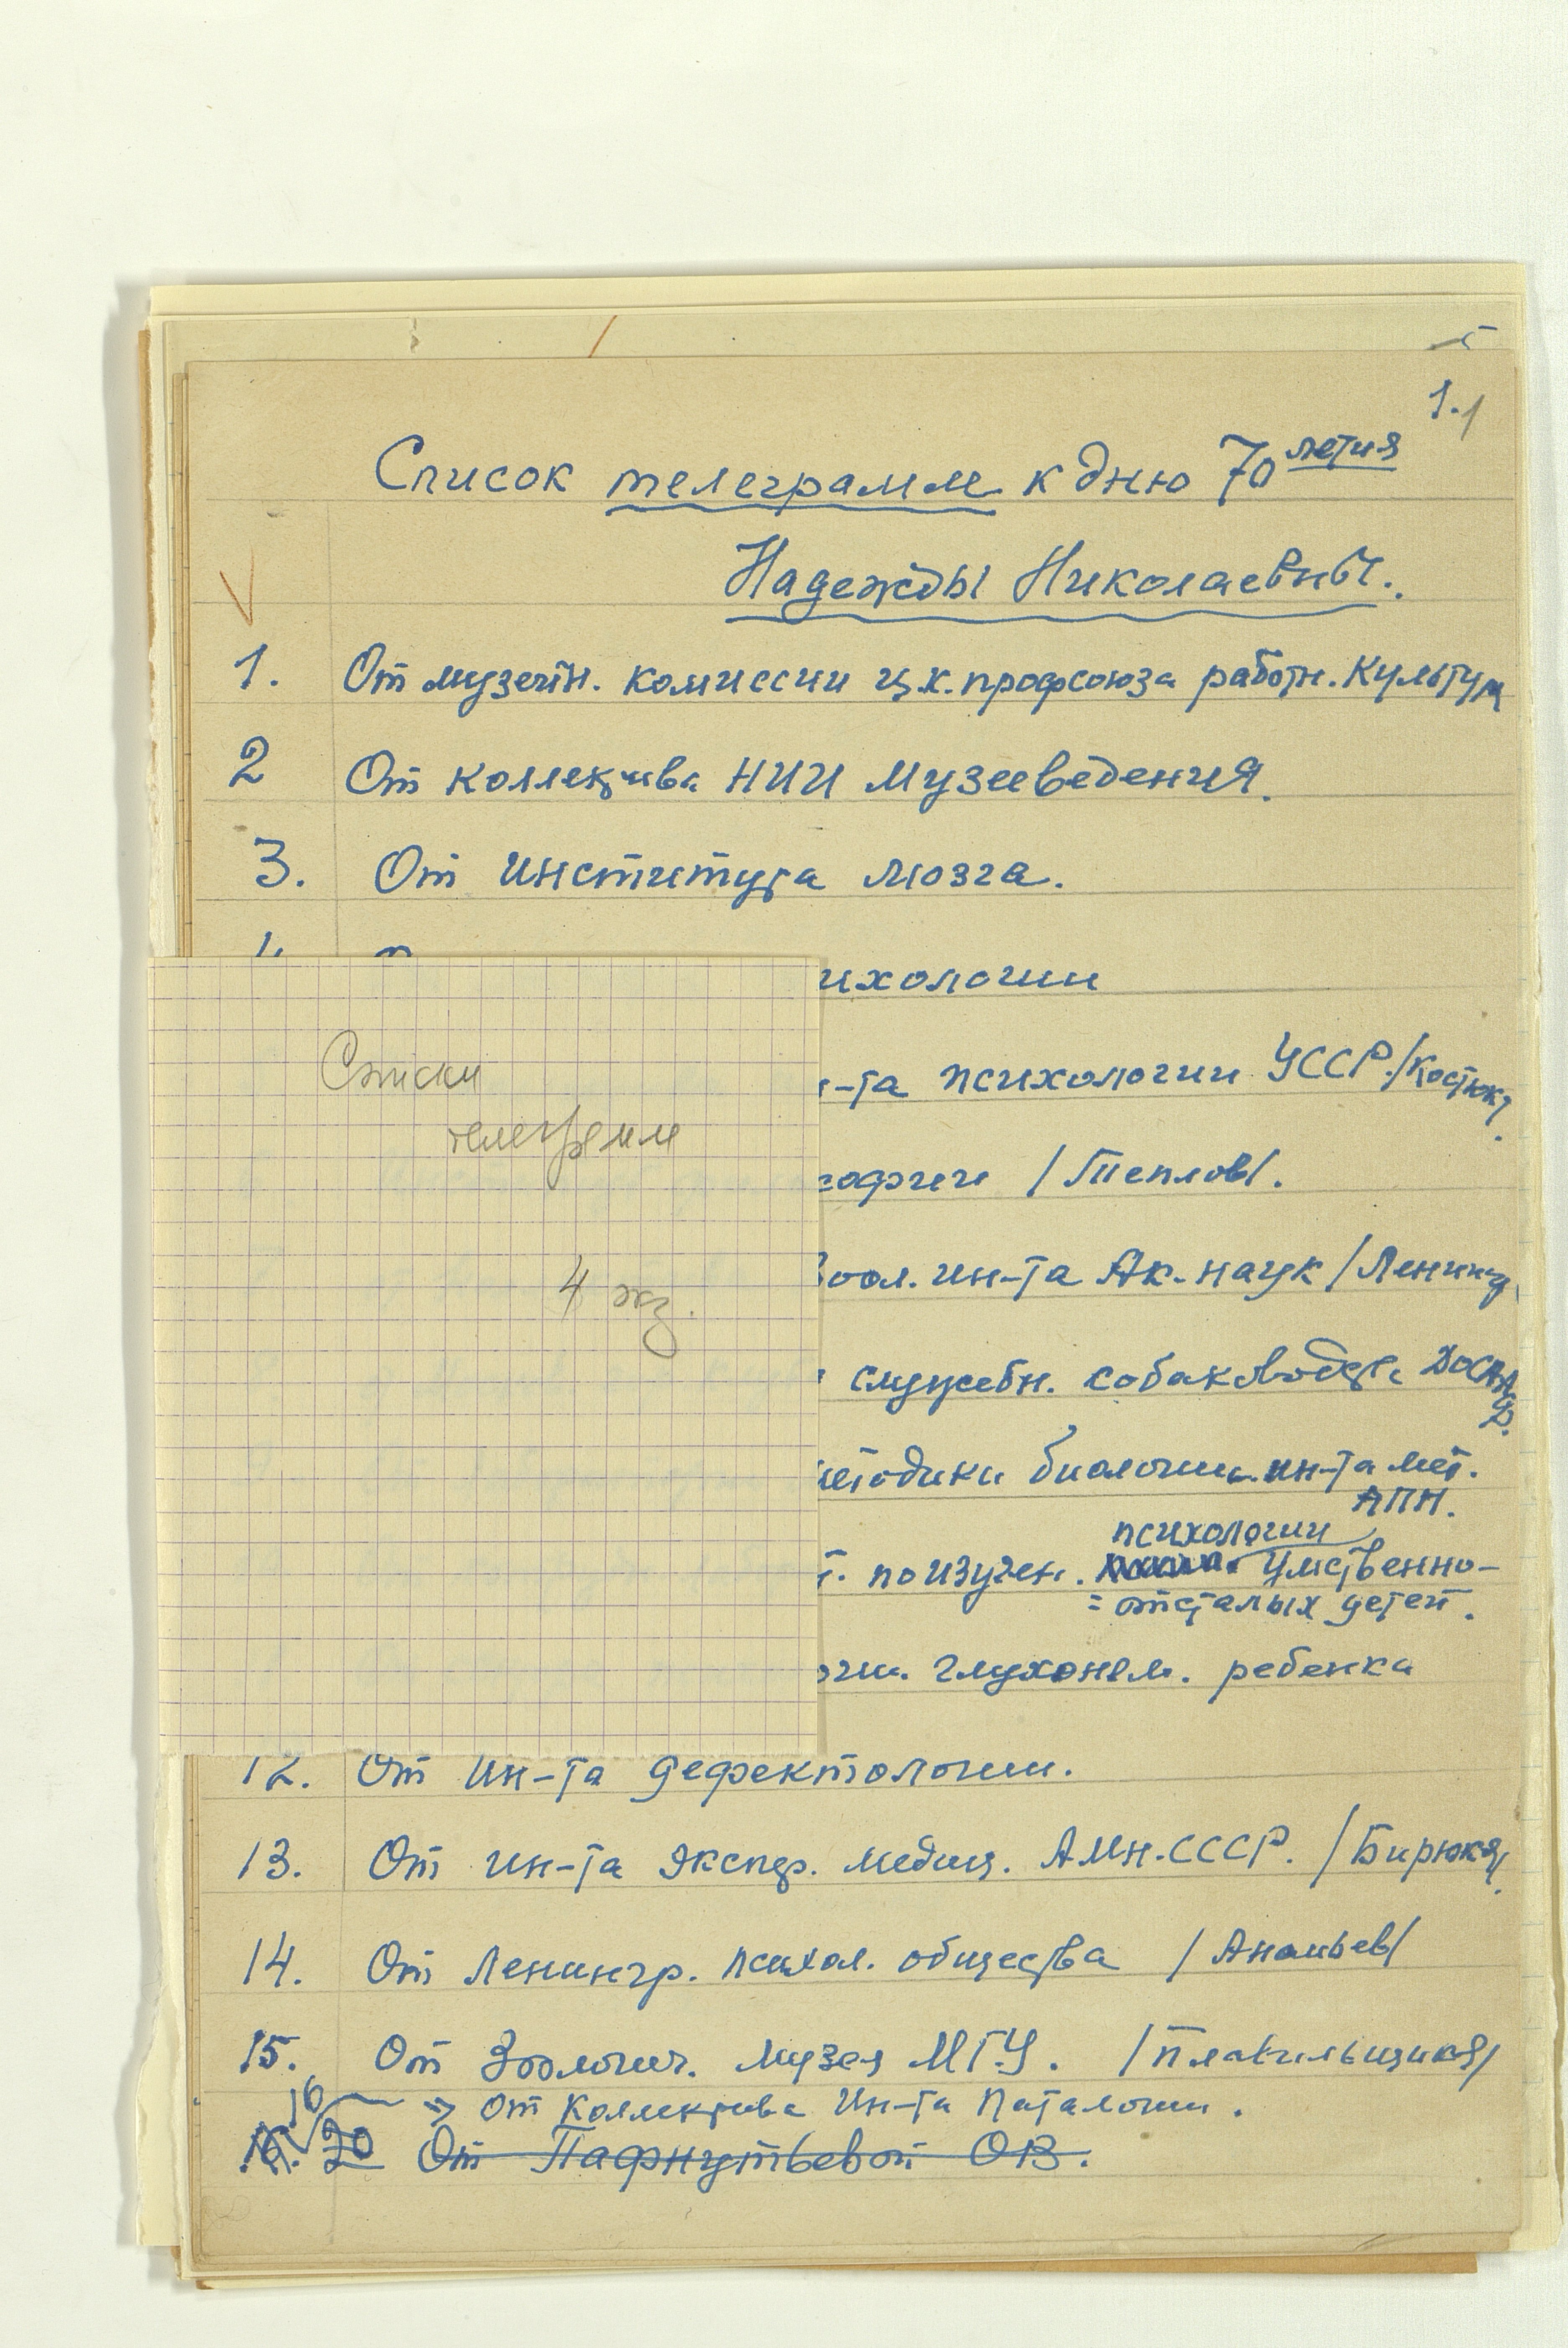 1.1
Список телеграмм к дню 70 летия
Надежды Николаевны.
1. От музейн. комиссии ц.к. профсоюза работн. Культуры
2 От коллектива НИИ Музееведения.
3. От института мозга.
ихологии
н-та психологии УССР./Костюк/.
софии /Теплов/.
Зоол. ин-та Ак. наук /Ленингр.
служебн. собаководства ДОСААФ.
методики биологии ин-та мет.
АПН.
психологии
т. по изучен. умственно-
=отсталых детей.
огии глухонем. ребенка
12. От Ин-та дефектологии.
13. От ин-та экспер. медиц. АМН.СССР. /Бирюков/.
14. От Ленингр. психол. общества /Ананьев/
15. От Зоологич. Музея МГУ. /Плавильщиков/
16 → От Коллектива Ин-та Паталогии.
20 От Пафнутьевой ОВ.
Списки
телеграмм
4 экз.